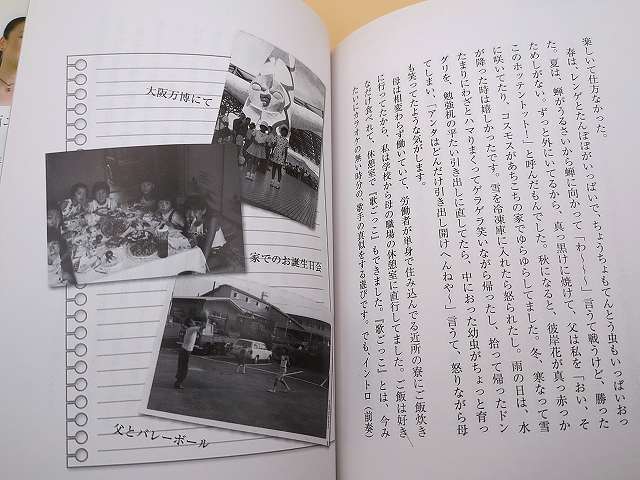 楽しいて仕方なかった。
春は、レンゲとたんぽぽがいっぱいで、ちょうちょもてんとう虫もいっぱいおっ
た。夏は、蝉がうるさいから蝉に向かって「わ〜〜〜」言うて戦うけど、勝った
ためしがない。ずっと外にいてるから、真っ黒けに焼けて、父は私を「おい、そ
このホッテントット！」と呼んだもんでした。秋になると、彼岸花が真っ赤っか
に咲いてたり、コスモスがあちこちの家でゆらゆらしてました。冬、寒なって雪
が降った時は嬉しかったです。雪を冷凍庫に入れたら怒られたし。雨の日は、水
たまりにわざとハマりまくってゲラゲラ笑いながら帰ったし、拾って帰ったドン
グリを、勉強机の平たい引き出しに直してたら、中におった幼虫がちょっと育っ
てしまい、「アンタはどんだけ引き出し開けへんねや〜」言うて、怒りながら母
も笑ってたような気がします。
母は相変わらず働いていて、労働者が単身で住み込んでる近所の寮にご飯炊き
に行ってたから、私は学校から母の職場の休憩室に直行してました。ご飯は好き
なだけ食べれて、休憩室で『歌ごっこ』もできました。『歌ごっこ』とは、今み
たいにカラオケの無い時分の、歌手の真似をする遊びです。でも、イントロ（前奏）
大阪万博にて
家でのお誕生日会
父とバレーボール